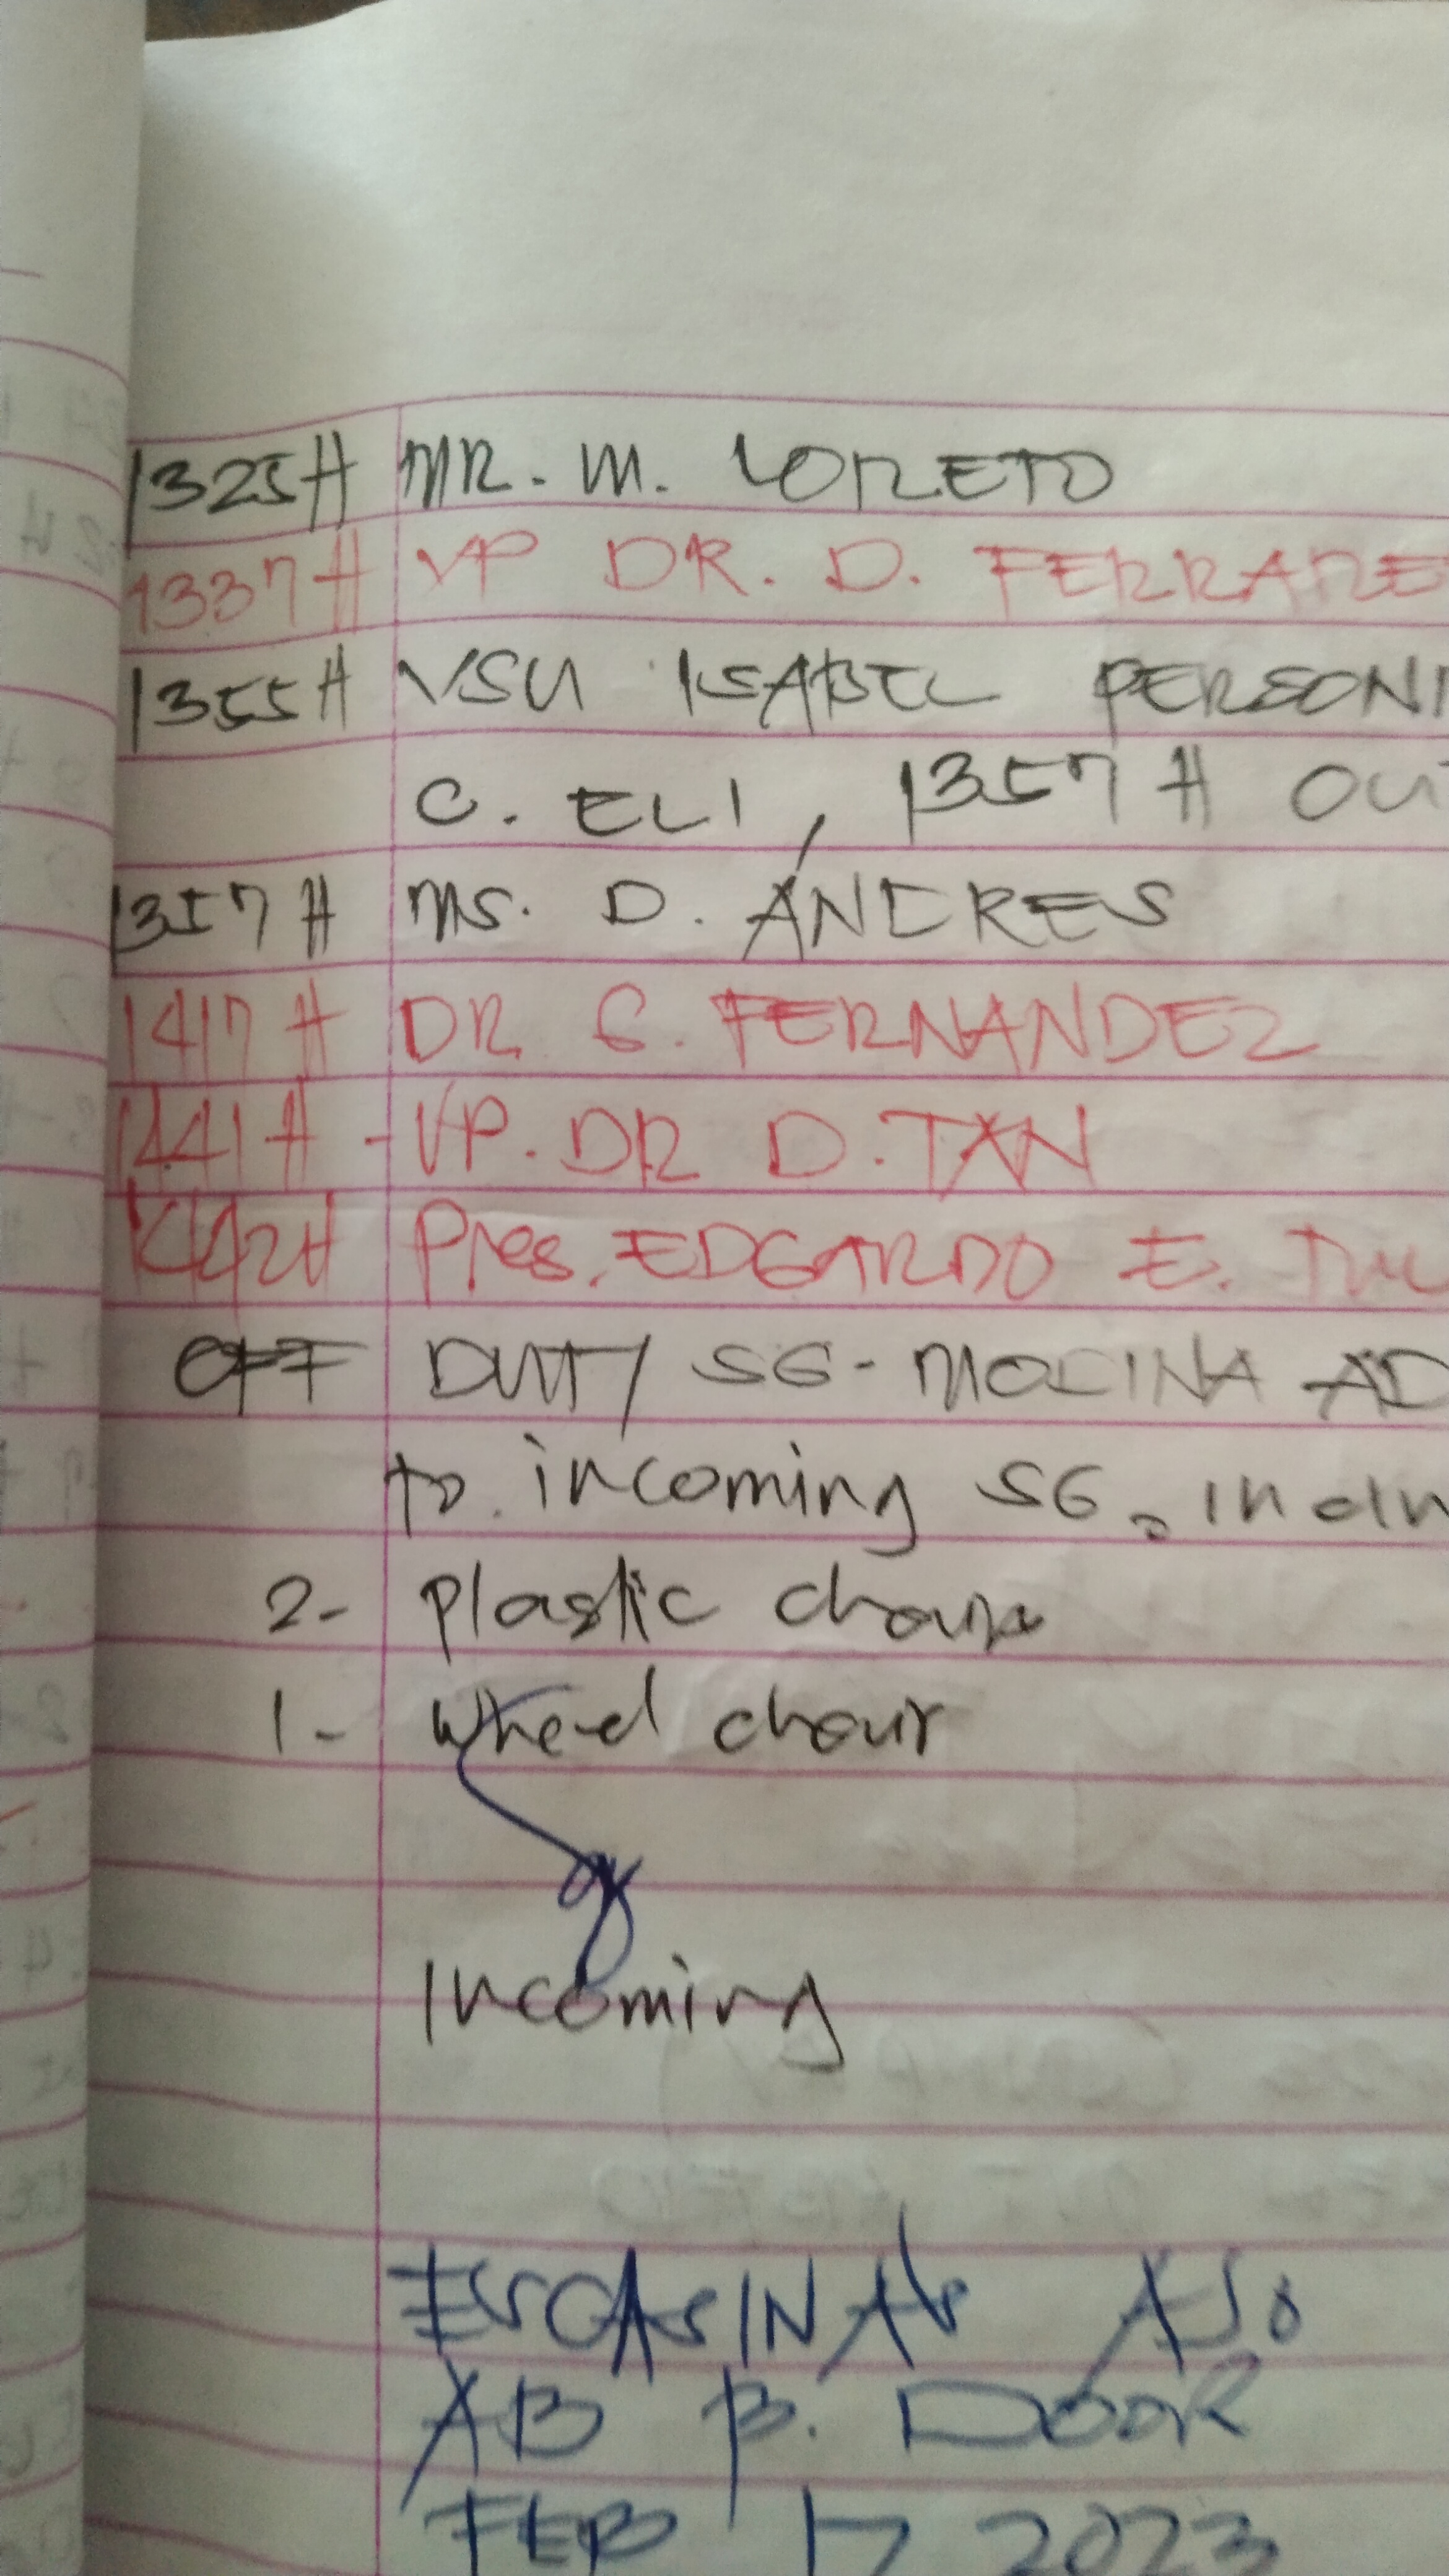 1325H MR. M. LORETO
1337H VP DR. D. FERRAREN
1355H VSU ISABEL PERSONN
C. ELI, 1357H OUT
1357H MS. D. ANDRES
1417H DR G. FERNANDEZ
1441H - VP. DR D. TAN
1442H Pres. EDGARDO E. TUL
OFF DUTY SG- MOLINA AD
to incoming SG.
2- plastic chair
1- wheel chair
Incoming
ESCASINAS
AB B. DOOR
FEB 17 2023